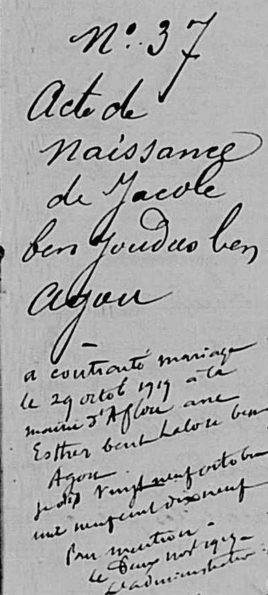 No. 37
Acte de
Naissance
de Jacob
ben Joudas ben
Agou
a contracté mariage
le 29 octob 1919 à la
mairie d'Aflou avec
Esther bent Lalou ben
Agou
vingt neuf octobre
mil neuf cent dix neuf
Pour mention
le deux nov 1919
L'administrateur